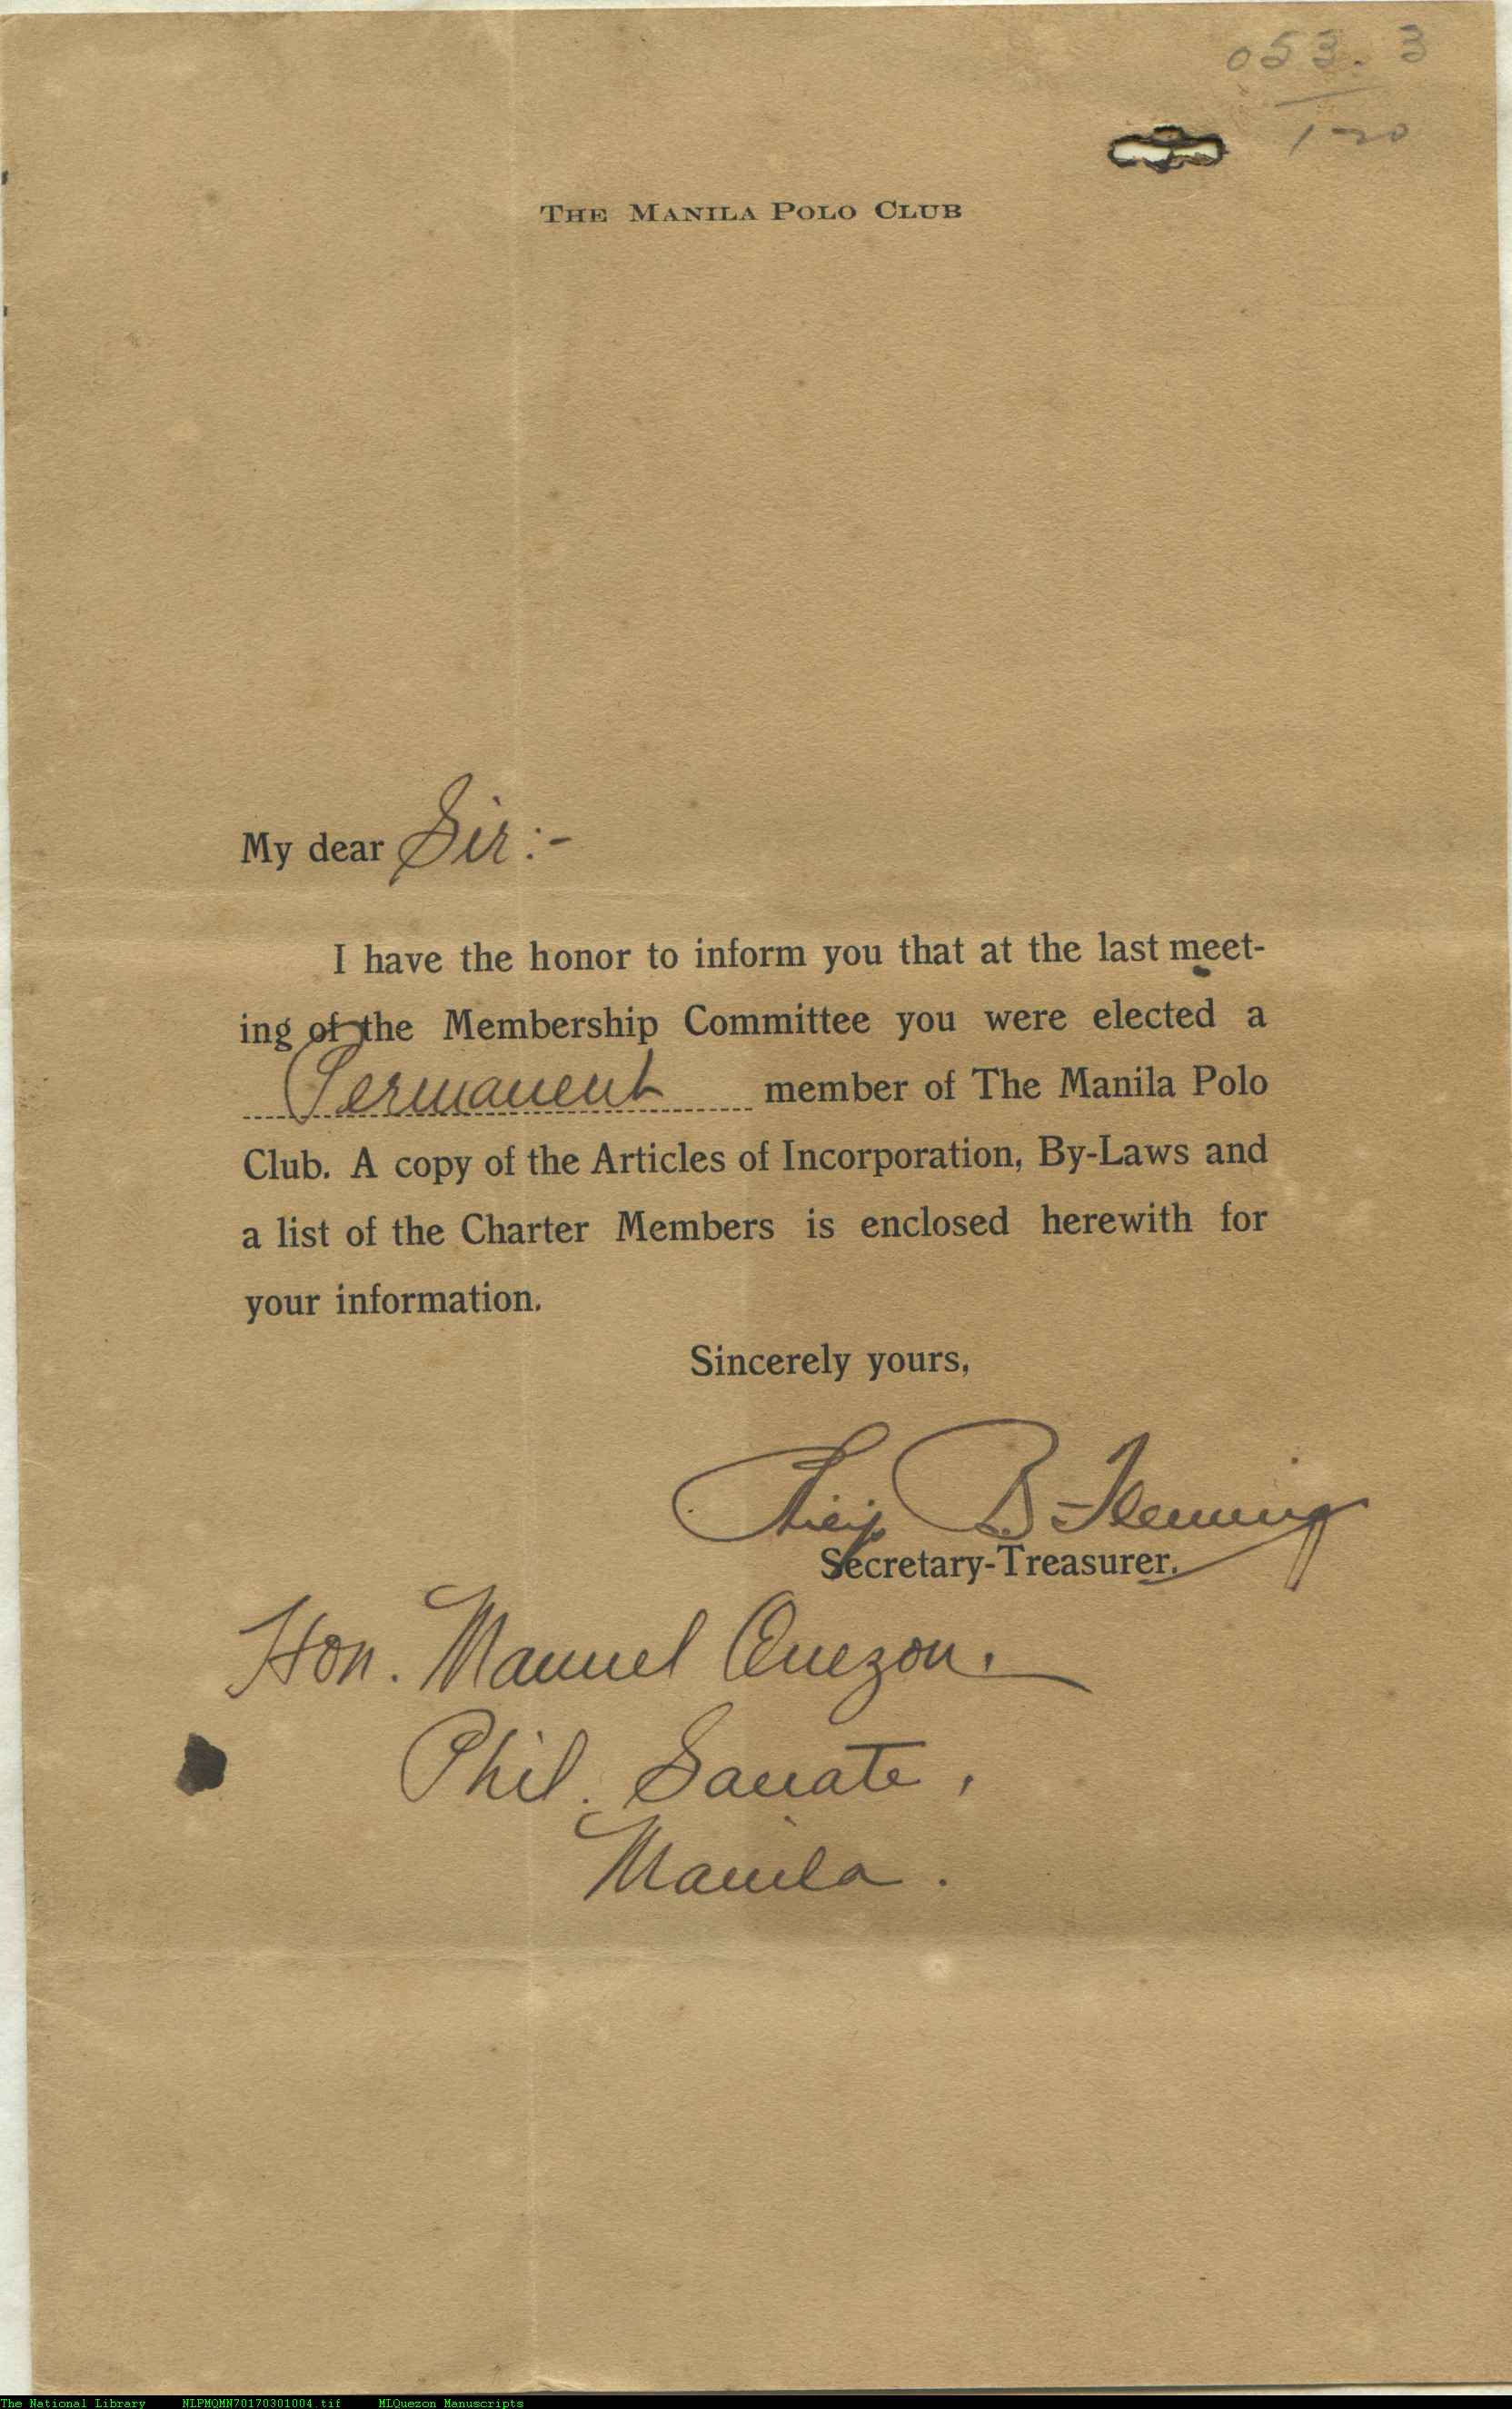 053.3
1-20
THE MANILA POLO CLUB
My dear Sir:-
I have the honor to inform you that at the last meet-
ing of the Membership Committee you were elected a
Permanent member of The Manila Polo
Club. A copy of the Articles of Incorporation, By-Laws and
a list of the Charter Members is enclosed herewith for
your information.
Sincerely yours,
Philip B Fleming
Secretary-Treasurer.
Hon. Manuel Quezon.
Phil. Sanate,
Manila.
The National Library NLPMQMN70170301004.tif MLQuezon Manuscripts